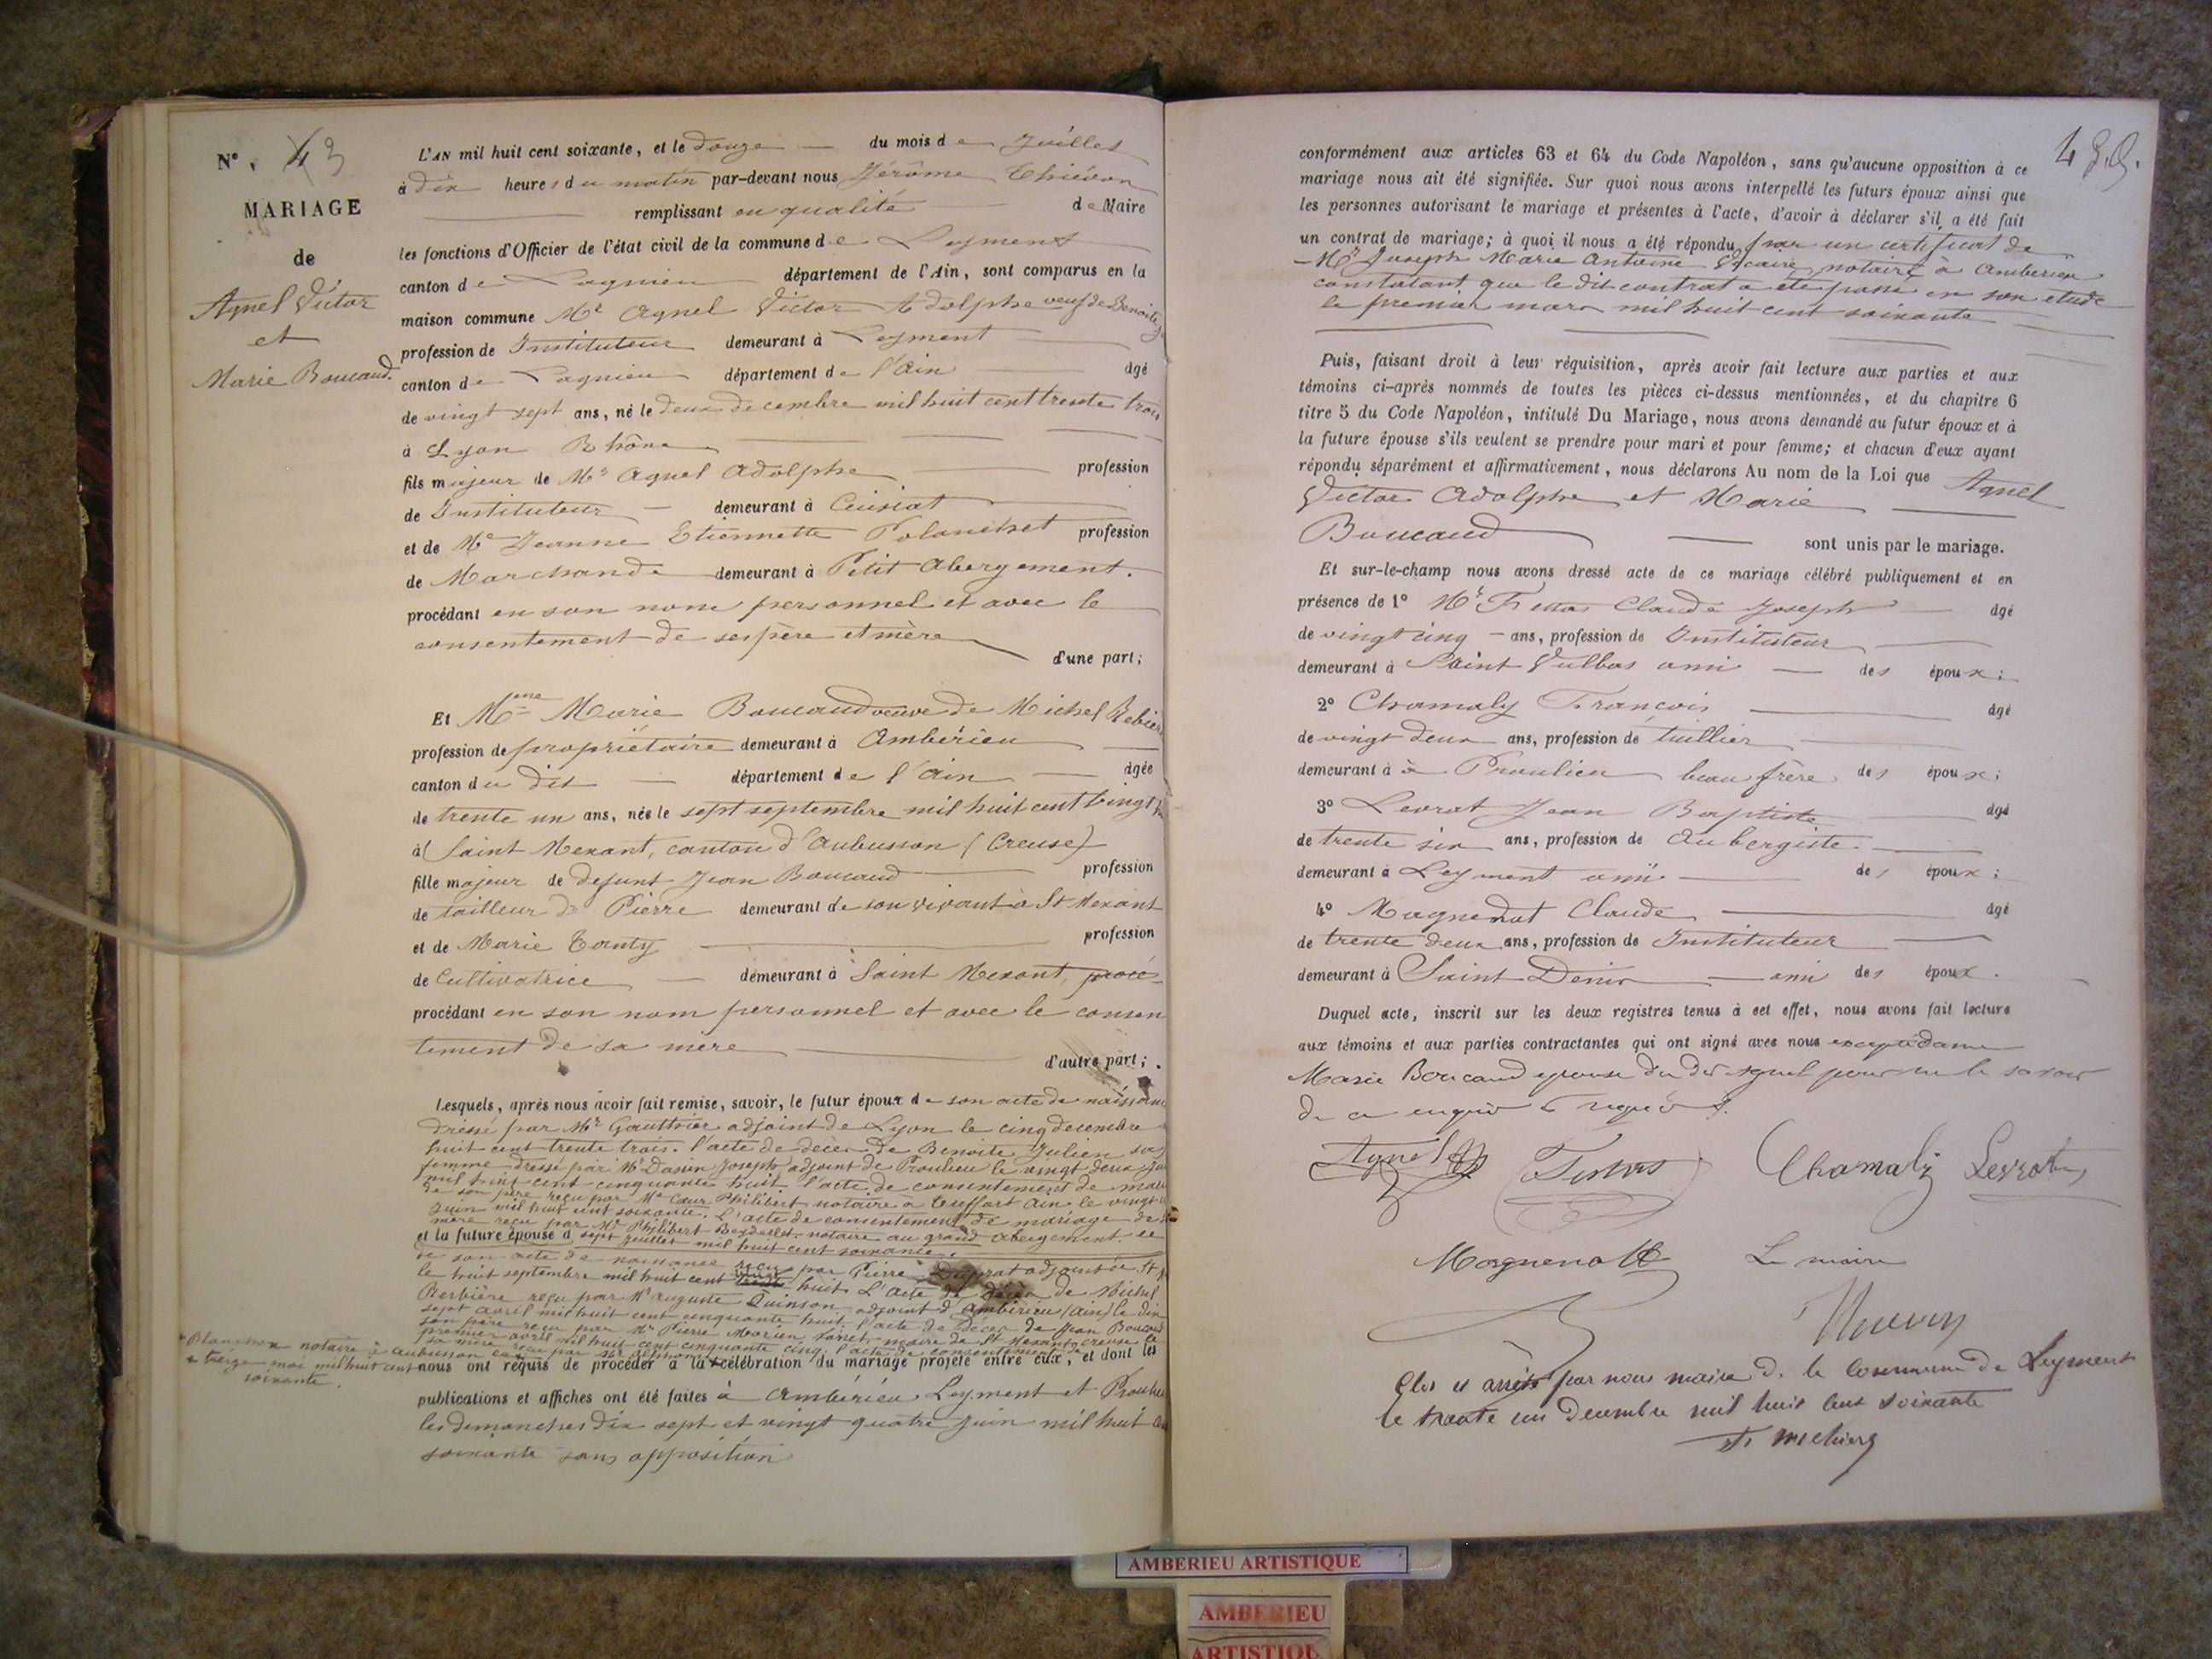 N°. 43
MARIAGE
de
Agnel Victor
et
Marie Boucaud.
L'AN mil huit cent soixante, et le douze du mois de Juillet
à dix heures du matin par-devant nous Jérôme Thiévon
remplissant en qualité de Maire
les fonctions d'Officier de l'état civil de la commune de Leyment
canton de Lagnieu département de l'Ain, sont comparus en la
maison commune Mr Agnel Victor Adolphe veuf de Benoite
profession de Instituteur demeurant à Leyment
canton de Lagnieu département de l'Ain âgé
de vingt sept ans, né le deux decembre mil huit cent trente trois
à Lyon Rhône
fils majeur de Mr Agnel Adolphe profession
de Instituteur demeurant à Ceusiat
et de Me Jeanne Etiennette Polanchet profession
de Marchande demeurant à Petit Abergement.
procédant en son nom personnel et avec le
consentement de ses père et mère
d'une part;
Et Mme Marie Boucaud veuve de Michel
profession de propriétaire demeurant à Ambérieu
canton du dit département de l'Ain âgée
de trente un ans, née le sept septembre mil huit cent vingt
à Saint Mexant, canton d'Aubusson (Creuse)
fille majeur de defunt Jean Boucaud profession
de tailleur de Pierre demeurant de son vivant à St Mexant
et de Marie Tanty profession
de Cultivatrice demeurant à Saint Mexant, procé-
procédant en son nom personnel et avec le consen
tement de sa mere
d'autre part;
Lesquels, après nous avoir fait remise, savoir, le futur époux de son acte de naissance
dressé par Mr Gauthier adjoint de Lyon le cinq decembre
huit cent trente trois. l'acte de décès de Benoite Julien sa
femme dressé par Mr Joseph adjoint de Proulieu le vingt deux
mil huit cent cinquante huit l'acte de consentement de
de son père reçu par Me Cœur Philibert notaire à Treffort Ain le vingt
Juin mil huit cent soixante. L'acte de consentement de mariage de
mère reçu par Me Philibert notaire au grand abergement le
et la future épouse d sept Juillet mil huit cent soixante.
de son acte de naissance reçu par Pierre Duprat adjoint de St
le huit septembre mil huit cent vingt huit. L'acte de décès de Michel
Berbière reçu par Mr auguste Quinson adjoint d'ambérieu (ain) le dix
sept avril mil huit cent cinquante huit l'acte de décès de Jean Boucaud
son père reçu par Mr Pierre maire de St Mexant creuse le
premier avril mil huit cent cinquante cinq. l'acte de consentement de
sa mère reçu par Me
notaire à aubusson
treize mai mil huit cent
soixante.
nous ont requis de procéder à la célébration du mariage projeté entre eux, et dont les
publications et affiches ont été faites à Ambérieu Leyment et
les dimanches dix sept et vingt quatre Juin mil huit
soixante sans opposition
conformément aux articles 63 et 64 du Code Napoléon, sans qu'aucune opposition à ce
mariage nous ait été signifiée. Sur quoi nous avons interpellé les futurs époux ainsi que
les personnes autorisant le mariage et présentes à l'acte, d'avoir à déclarer s'il a été fait
un contrat de mariage; à quoi il nous a été répondu par un certificat de
Mr Joseph Marie Antoine notaire à Ambérieu
constatant que le dit contrat a été passé en son etude
le premier mars mil huit cent soixante
Puis, faisant droit à leur réquisition, après avoir fait lecture aux parties et aux
témoins ci-après nommés de toutes les pièces ci-dessus mentionnées, et du chapitre 6
titre 5 du Code Napoléon, intitulé Du Mariage, nous avons demandé au futur époux et à
la future épouse s'ils veulent se prendre pour mari et pour femme; et chacun d'eux ayant
répondu séparément et affirmativement, nous déclarons Au nom de la Loi que Agnel
Victor Adolphe et Marie
Boucaud
sont unis par le mariage.
Et sur-le-champ nous avons dressé acte de ce mariage célébré publiquement et en
présence de 1° Mr Claude Joseph âgé
de vingt cinq ans, profession de Instituteur
demeurant à Saint Vulbas ami des époux;
2° Chamaly François âgé
de vingt deux ans, profession de tuillier
demeurant à à Proulieu beau frère des époux;
3° Levrat Jean Baptiste âgé
de trente six ans, profession de Aubergiste
demeurant à Leyment ami des époux;
4° Magnenat Claude âgé
de trente deux ans, profession de Instituteur
demeurant à Saint Denis ami des époux.
Duquel acte, inscrit sur les deux registres tenus à cet effet, nous avons fait lecture
aux témoins et aux parties contractantes qui ont signé avec nous excepté dame
Marie Boucaud epouse du dit Agnel pour ne le savoir
de ce enquis et requis.
Agnel
Chamaly Levrat
Magnenat Le maire
Clos et arrêté par nous maire de la Commune de Leyment
le trente un Decembre mil huit cent soixante
AMBERIEU ARTISTIQUE
AMBERIEU
ARTISTIQUE